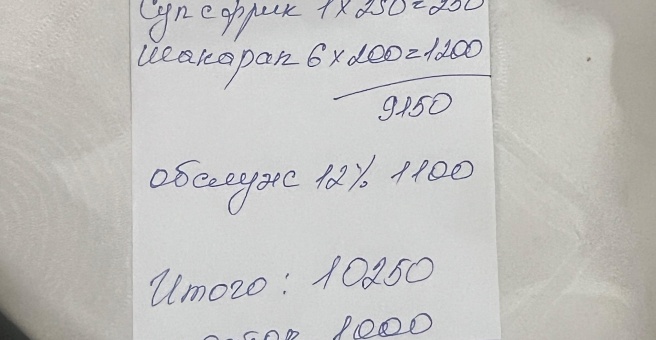 Суп с фрик 1 x 250 = 250
Шакарап 6 x 200 = 1200
9150
обслуж 12% 1100
Итого : 10250
1000